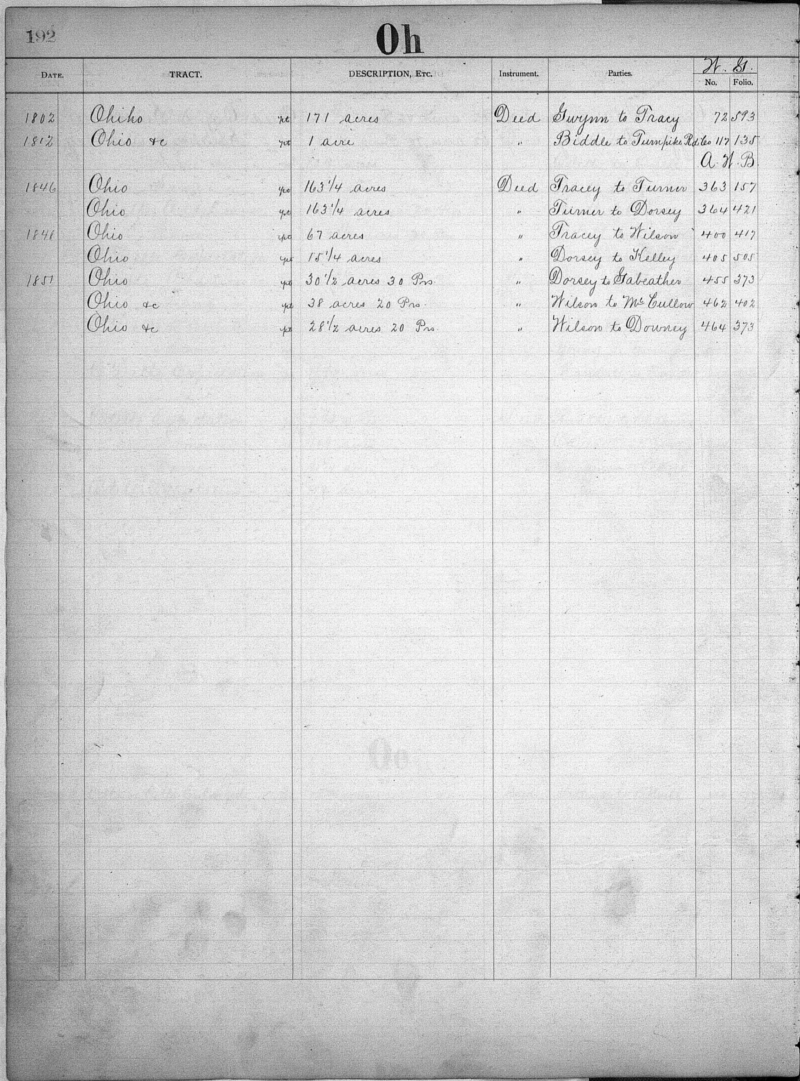 192
Oh
W. G.
DATE. TRACT. DESCRIPTION, ETC. Instrument. Parties. No. Folio.
1802 Ohiho pt 171 acres Deed Gwynn to Tracy 72 593
1812 Ohio &c pt 1 acre " Biddle to Turnpike Rd. Co 117 135
A. W. B.
1846 Ohio pt 163 1/4 acres Deed Tracey to Turner 363 157
Ohio pt 163 1/4 acres " Turner to Dorsey 364 421
1848 Ohio pt 67 acres " Tracey to Wilson 400 417
Ohio pt 15 1/4 acres " Dorsey to Kelley 405 505
1851 Ohio pt 30 1/2 acres 30 Prs " Dorsey to 455 373
Ohio &c pt 38 acres 20 Prs. " Wilson to McCullow 462 402
Ohio &c pt 28 1/2 acres 20 Prs " Wilson to Downey 464 373